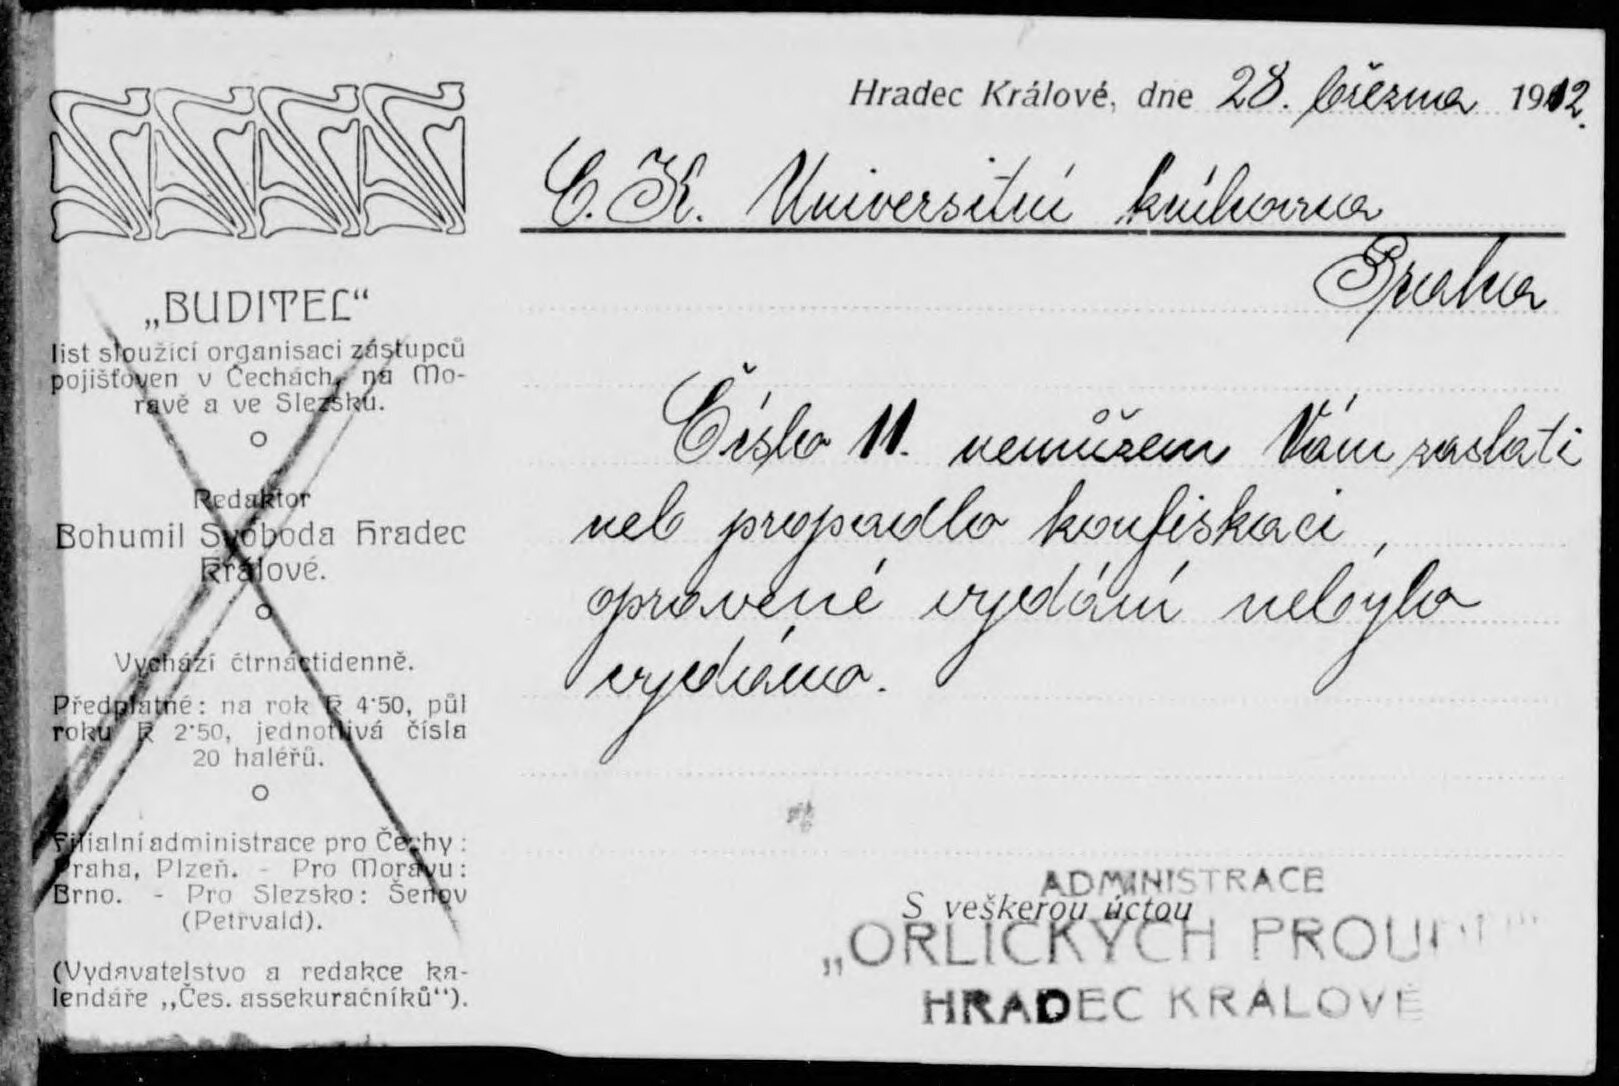 „BUDITEL“
list sloužící organisaci zástupců
pojišťoven v Čechách, na Mo-
ravě a ve Slezsku.
Redaktor
Bohumil Svoboda Hradec
Králové.
Vychází čtrnáctidenně.
Předplatné: na rok K 4·50, půl
roku K 2·50, jednotlivá čísla
20 haléřů.
Filialní administrace pro Čechy:
Praha, Plzeň. - Pro Moravu:
Brno. - Pro Slezsko: Šenov
(Petřvald).
(Vydavatelstvo a redakce ka-
lendáře „Čes. assekuračníků“).
Hradec Králové, dne 28. března 1912.
C. K. Universitní knihovna
Praha
Číslo 11. nemůžem Vám zaslati
neb propadlo konfiskaci,
opravené vydání nebylo
vydáno.
S veškerou úctou
ADMINISTRACE
„ORLICKÝCH PROUDŮ“
HRADEC KRÁLOVÉ